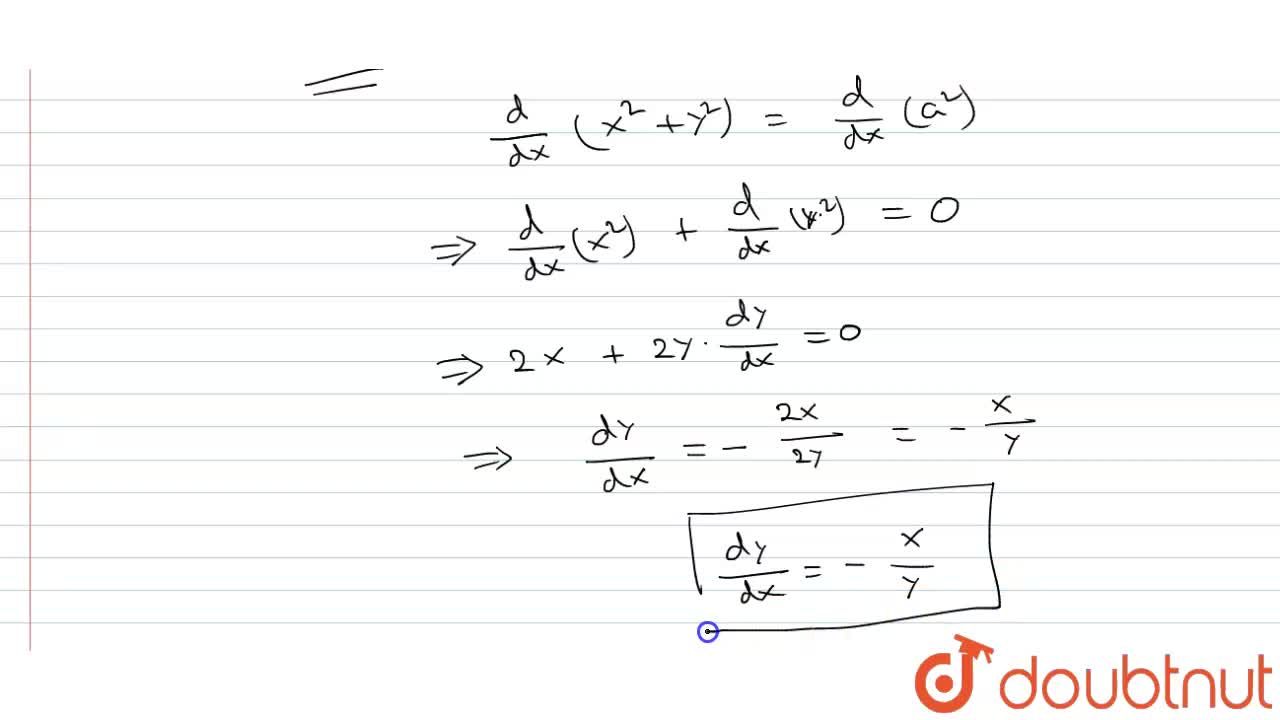 d/dx (x² + y²) = d/dx (a²)
⇒ d/dx (x²) + d/dx (y²) = 0
⇒ 2x + 2y · dy/dx = 0
⇒ dy/dx = - 2x/2y = - x/y
dy/dx = - x/y
doubtnut